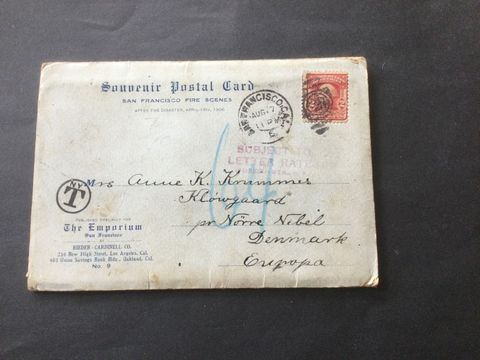 Souvenir Postal Card
SAN FRANCISCO FIRE SCENES
AFTER THE DISASTER, APRIL 18TH, 1906
SAN FRANCISCO, CAL.
AUG 7
11 PM
SUBJECT TO
LETTER RATE
NY
T
64
Mrs Anne K. Krummes
Klöwgaard
pr Nörre Nibel
Denmark
Europa
PUBLISHED SPECIALLY FOR
The Emporium
San Francisco
BY
RIEDER-CARDINELL CO.
234 New High Street, Los Angeles, Cal.
Union Savings Bank Bldg., Oakland, Cal.
No. 9